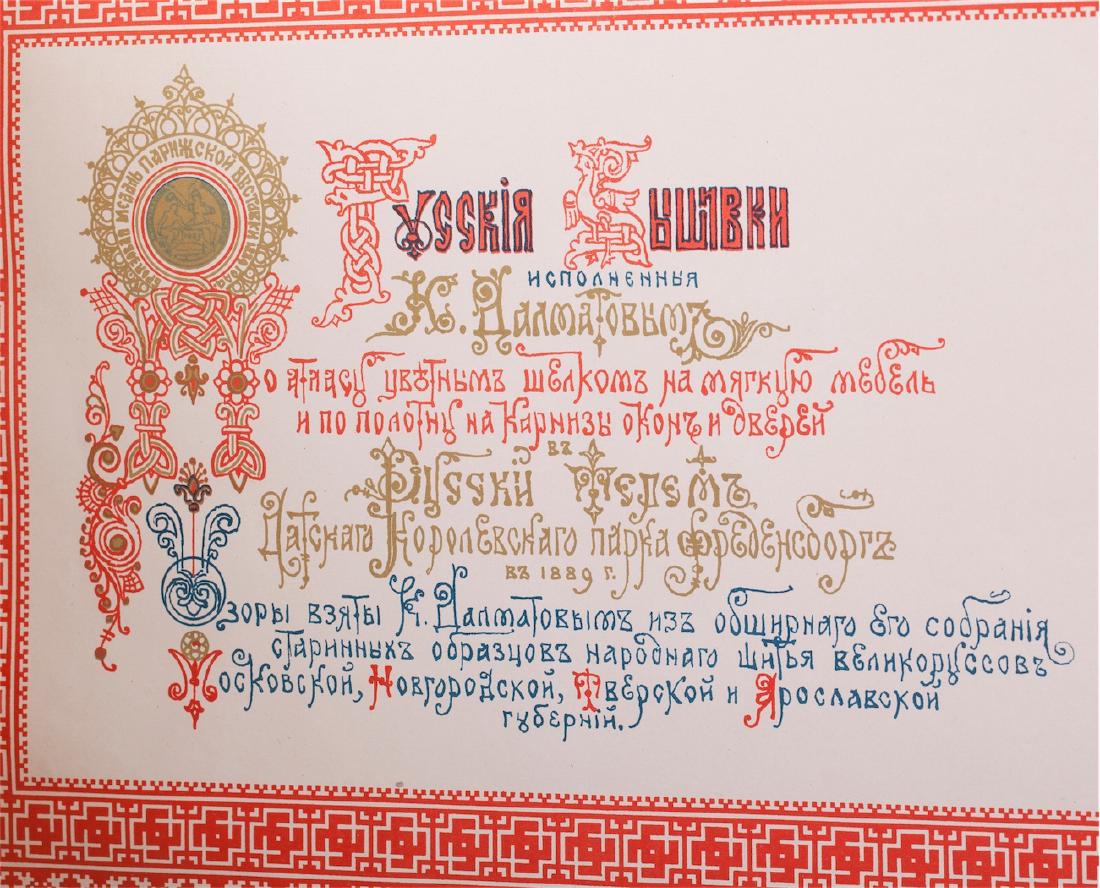 МЕДАЛЬ ПАРИЖСКОЙ ВЫСТАВКИ
Русскія Вышивки
исполненныя
К. Далматовымъ
По атласу цвѣтнымъ шелкомъ на мягкую мебель
и по полотну на карнизы оконъ и дверей
въ
Русскій Теремъ
Датскаго Королевскаго парка Фреденсборгъ
въ 1889 г.
Узоры взяты К. Далматовымъ изъ обширнаго его собранія
старинныхъ образцовъ народнаго шитья великоруссовъ
Московской, Новгородской, Тверской и Ярославской
губерній.